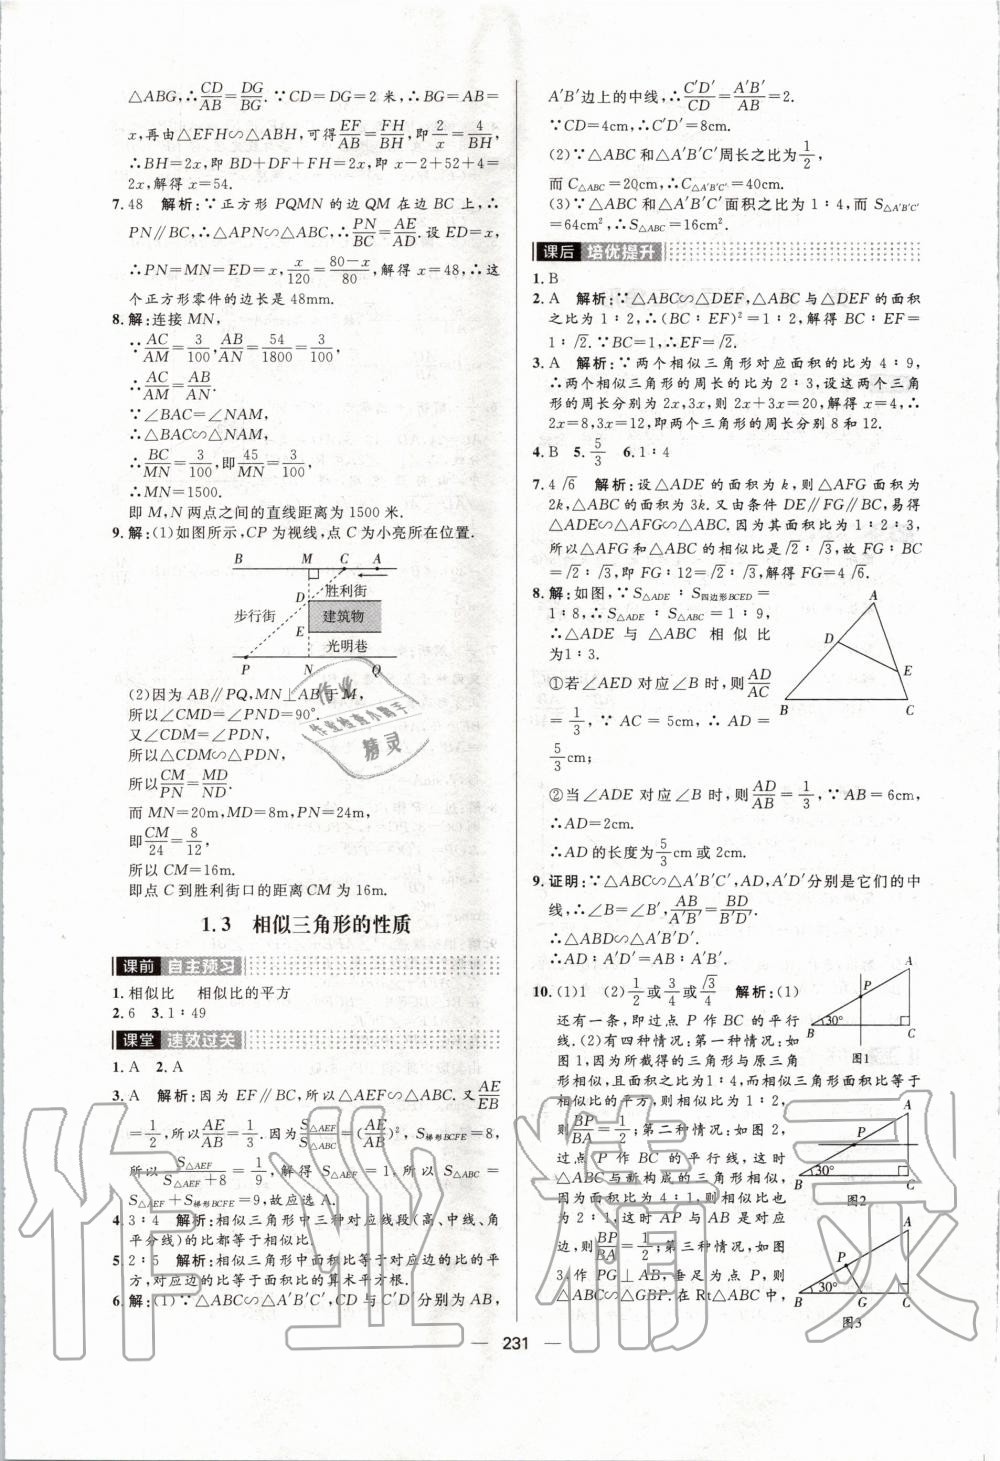 △ABG,∴CD/AB=DG/BG.∵CD=DG=2米,∴BG=AB=
x,再由△EFH∽△ABH,可得EF/AB=FH/BH,即2/x=4/BH,
∴BH=2x,即BD+DF+FH=2x,即x-2+52+4=
2x,解得x=54.
7.48 解析:∵正方形PQMN的边QM在边BC上,∴
PN∥BC,∴△APN∽△ABC,∴PN/BC=AE/AD.设ED=x,
∴PN=MN=ED=x,x/120=(80-x)/80,解得x=48,∴这
个正方形零件的边长是48mm.
8.解:连接MN,
∵AC/AM=3/100,AB/AN=54/1800=3/100,
∴AC/AM=AB/AN.
∵∠BAC=∠NAM,
∴△BAC∽△NAM,
∴BC/MN=3/100,即45/MN=3/100,
∴MN=1500.
即M,N两点之间的直线距离为1500米.
9.解:(1)如图所示,CP为视线,点C为小亮所在位置.
B M C A
胜利街
D
步行街 建筑物
E
光明巷
P N Q
(2)因为AB∥PQ,MN⊥AB于M,
所以∠CMD=∠PND=90°.
又∠CDM=∠PDN,
所以△CDM∽△PDN,
所以CM/PN=MD/ND.
而MN=20m,MD=8m,PN=24m,
即CM/24=8/12,
所以CM=16m.
即点C到胜利街口的距离CM为16m.
1.3 相似三角形的性质
课前 自主预习
1.相似比 相似比的平方
2.6 3.1∶49
课堂 速效过关
1.A 2.A
3.A 解析:因为EF∥BC,所以△AEF∽△ABC.又AE/EB
=1/2,所以AE/AB=1/3.因为S△AEF/S△ABC=(AE/AB)²,S梯形BCFE=8,
所以S△AEF/(S△AEF+8)=1/9,解得S△AEF=1.所以S△ABC=
S△AEF+S梯形BCFE=9,故应选A.
4.3∶4 解析:相似三角形中三种对应线段(高、中线、角
平分线)的比都等于相似比.
5.2∶5 解析:相似三角形中面积比等于对应边的比的平
方,对应边的比等于面积比的算术平方根.
6.解:(1)∵△ABC∽△A′B′C′,CD与C′D′分别为AB,
A′B′边上的中线,∴C′D′/CD=A′B′/AB=2.
∵CD=4cm,∴C′D′=8cm.
(2)∵△ABC和△A′B′C′周长之比为1/2,
而C△ABC=20cm,∴C△A′B′C′=40cm.
(3)∵△ABC和△A′B′C′面积之比为1∶4,而S△A′B′C′
=64cm²,∴S△ABC=16cm².
课后 培优提升
1.B
2.A 解析:∵△ABC∽△DEF,△ABC与△DEF的面积
之比为1∶2,∴(BC∶EF)²=1∶2,解得BC∶EF=
1∶√2.∵BC=1,∴EF=√2.
3.A 解析:∵两个相似三角形对应面积的比为4∶9,
∴两个相似三角形的周长的比为2∶3,设这两个三角
形的周长分别为2x,3x,则2x+3x=20,解得x=4,∴
2x=8,3x=12,即两个三角形的周长分别8和12.
4.B 5.5/3 6.1∶4
7.4√6 解析:设△ADE的面积为k,则△AFG面积为
2k,△ABC的面积为3k.又由条件DE∥FG∥BC,易得
△ADE∽△AFG∽△ABC.因为其面积比为1∶2∶3,
所以△AFG和△ABC的相似比是√2∶√3,故FG∶BC
=√2∶√3,即FG∶12=√2∶√3,解得FG=4√6.
8.解:如图,∵S△ADE∶S四边形BCED=
1∶8,∴S△ADE∶S△ABC=1∶9,
∴△ADE与△ABC相似比
为1∶3.
①若∠AED对应∠B时,则AD/AC
=1/3,∵AC=5cm,∴AD=
5/3cm;
A
D
E
B C
②当∠ADE对应∠B时,则AD/AB=1/3,∵AB=6cm,
∴AD=2cm.
∴AD的长度为5/3cm或2cm.
9.证明:∵△ABC∽△A′B′C′,AD,A′D′分别是它们的中
线,∴∠B=∠B′,AB/A′B′=BD/B′D′.
∴△ABD∽△A′B′D′.
∴AD∶A′D′=AB∶A′B′.
10.(1)1 (2)1/2或3/4或√3/4 解析:(1)
还有一条,即过点P作BC的平行
线.(2)有四种情况:第一种情况:如
图1,因为所截得的三角形与原三角
形相似,且面积之比为1∶4,而相似三角形面积比等于
相似比的平方,则相似比为1∶2,
则BP/BA=1/2;第二种情况:如图2,
过点P作BC的平行线,这时
△ABC与新构成的三角形相似,
因为面积比为4∶1,则相似比也
为2∶1,这时AP与AB是对应
边,则BP/BA=1/2;第三种情况,如图
3,作PG⊥AB,垂足为点P,则
△ABC∽△GBP.在Rt△ABC中,
A
P
30°
B C
图1
A
P
30°
B C
图2
A
P
30°
B G C
图3
— 231 —
作业
作业检查小助手
精灵
作业精灵